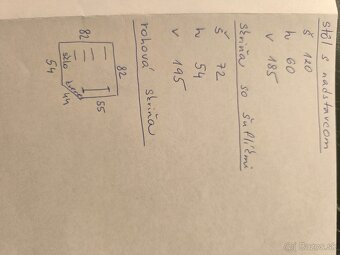 stôl s nadstavcom
š 120
h 60
v 185
skriňa so šuflíčmi
š 72
h 54
v 195
rohová skriňa
82
82
sklo
54
44
55